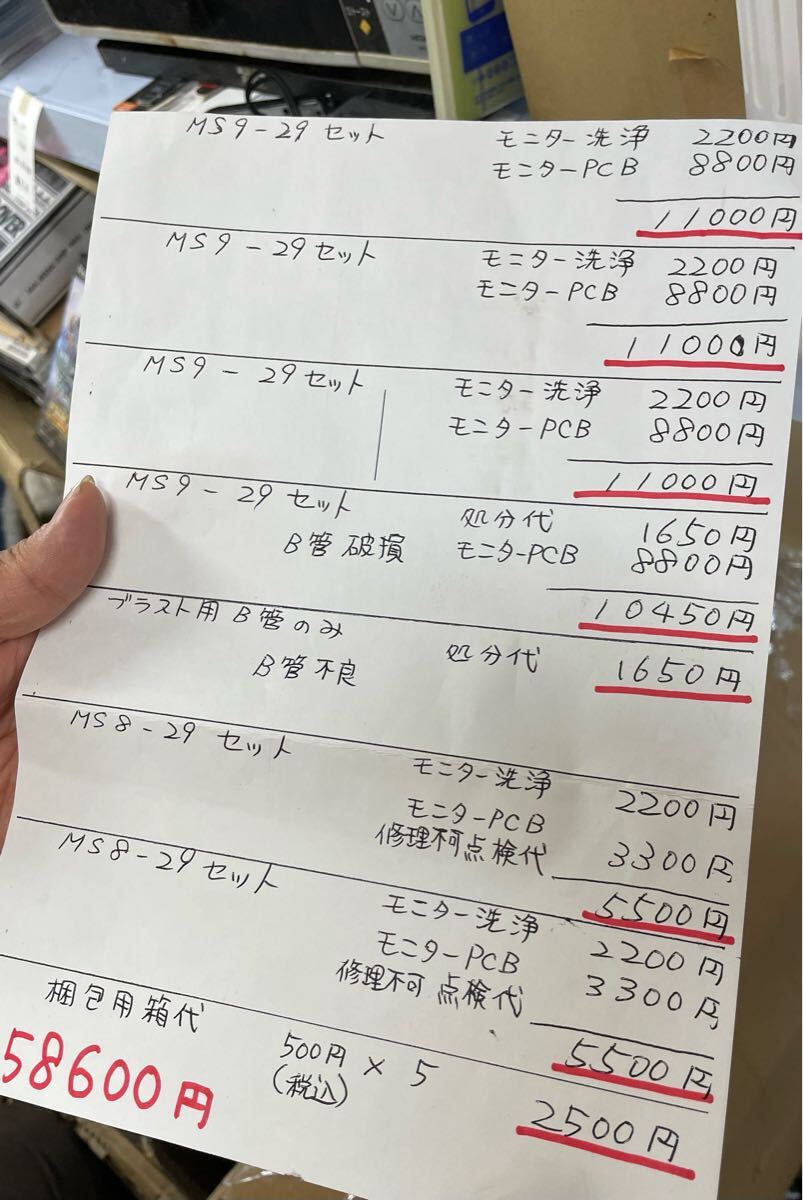 MS9-29セット モニター洗浄 2200円
モニターPCB 8800円
11000円
MS9-29セット モニター洗浄 2200円
モニターPCB 8800円
11000円
MS9-29セット モニター洗浄 2200円
モニターPCB 8800円
11000円
MS9-29セット 処分代 1650円
B管破損 モニターPCB 8800円
10450円
ブラスト用B管のみ 処分代 1650円
B管不良
MS8-29セット モニター洗浄 2200円
モニターPCB
修理不可点検代 3300円
5500円
MS8-29セット モニター洗浄 2200円
モニターPCB
修理不可点検代 3300円
5500円
梱包用箱代 500円 × 5 2500円
(税込)
58600円